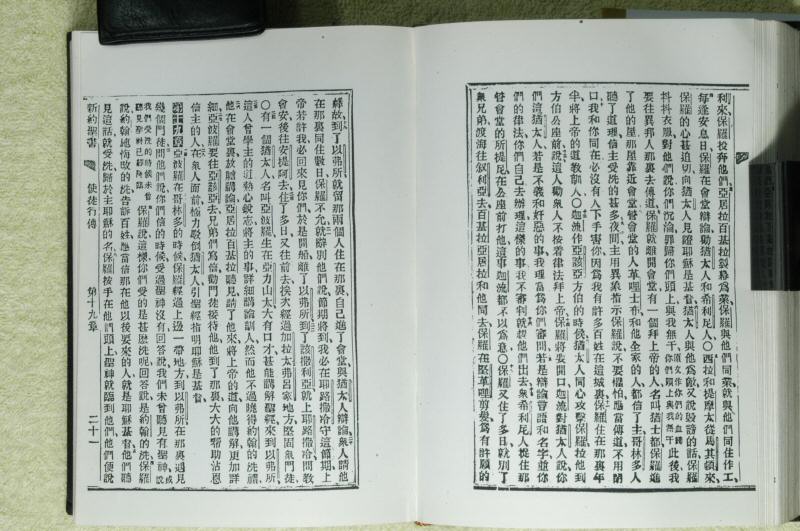 利來保羅投奔他們亞居拉百基拉製幕為業保羅與他們同業就與他們同住作工
每逢安息日保羅在會堂辯論勸猶太人和希利尼人〇西拉和提摩太從馬其頓來
保羅的心甚迫切向猶太人見證耶穌是基督猶太人與他為敵又說毀謗的話保羅
抖抖衣服對他們說你們沉淪罪歸你們頭上與我無干 此後我
要往異邦人那裏去傳道保羅就離開會堂有一個拜上帝的人名叫猶士都保羅進
了他的屋那屋靠近會堂管會堂的人基哩士布和他全家的人都信了主哥林多人
聽了道理信主受洗的甚多夜間主用異象指示保羅說不要懼怕應當傳道不用閉
口我和你同在必沒有人下手害你因為我有許多百姓在這城裏保羅住在那裏一年
半將上帝的道教訓人〇迦流作亞該亞方伯的時候猶太人同心攻擊保羅拉他到
方伯公座前說這人勸衆人不按着律法拜上帝保羅將要開口迦流對猶太人說你
們這猶太人若是不義和奸惡的事我理當為你們審問若是辯論言語和名字並你
們的律法你們自己去辦理這樣的事我不審判就趕他們出去衆希利尼人捉住那
管會堂的所提尼在公座前打他這事迦流都不以為意〇保羅又住了多日就別了
衆兄弟渡海往叙利亞去百基拉亞居拉和他同去保羅在堅革哩剪髮為有許願的
緣故到了以弗所就留那兩個人住在那裏自己進了會堂與猶太人辯論衆人請他
在那裏同住數日保羅不允就辭別他們說節期將到我必在耶路撒冷守這節期上
帝若許我必回來見你們於是開船離了以弗所到了該撒利亞就上耶路撒冷問教
會安後往安提阿去住了多日又往前去挨次經過加拉太弗呂家地方堅固衆門徒
〇有一個猶太人名叫亞波羅生在亞力山太大有口才甚能講解聖經來到以弗所
這人曾學主的道熱心銳志將主的事詳細講論訓人然而他不過曉得約翰的洗禮
他在會堂裏放膽講論亞居拉百基拉聽見請了他來將上帝的道向他講解更加詳
細亞波羅要往亞該亞去兄弟們寫信勸門徒接待他他到了那裏大大的幫助沾恩
信主的人在衆人面前極力駁倒猶太人引聖經指明耶穌是基督
第十九章亞波羅在哥林多的時候保羅經過上邊一帶地方到以弗所在那裏遇見
幾個門徒問他們說你們信的時候受過聖神沒有回答說我們未曾聽見有聖神
我們受洗的時候未曾聽見聖神已經降臨 保羅說這樣你們受的是甚麼洗呢回答說是約翰的洗保羅
說約翰施悔改的洗告訴百姓應當信那在他以後要來的人就是耶穌基督他們聽
見這話就受洗歸於主耶穌的名保羅按手在他們頭上聖神就臨到他們他們便說
新約聖書 使徒行傳 第十九章 二十一